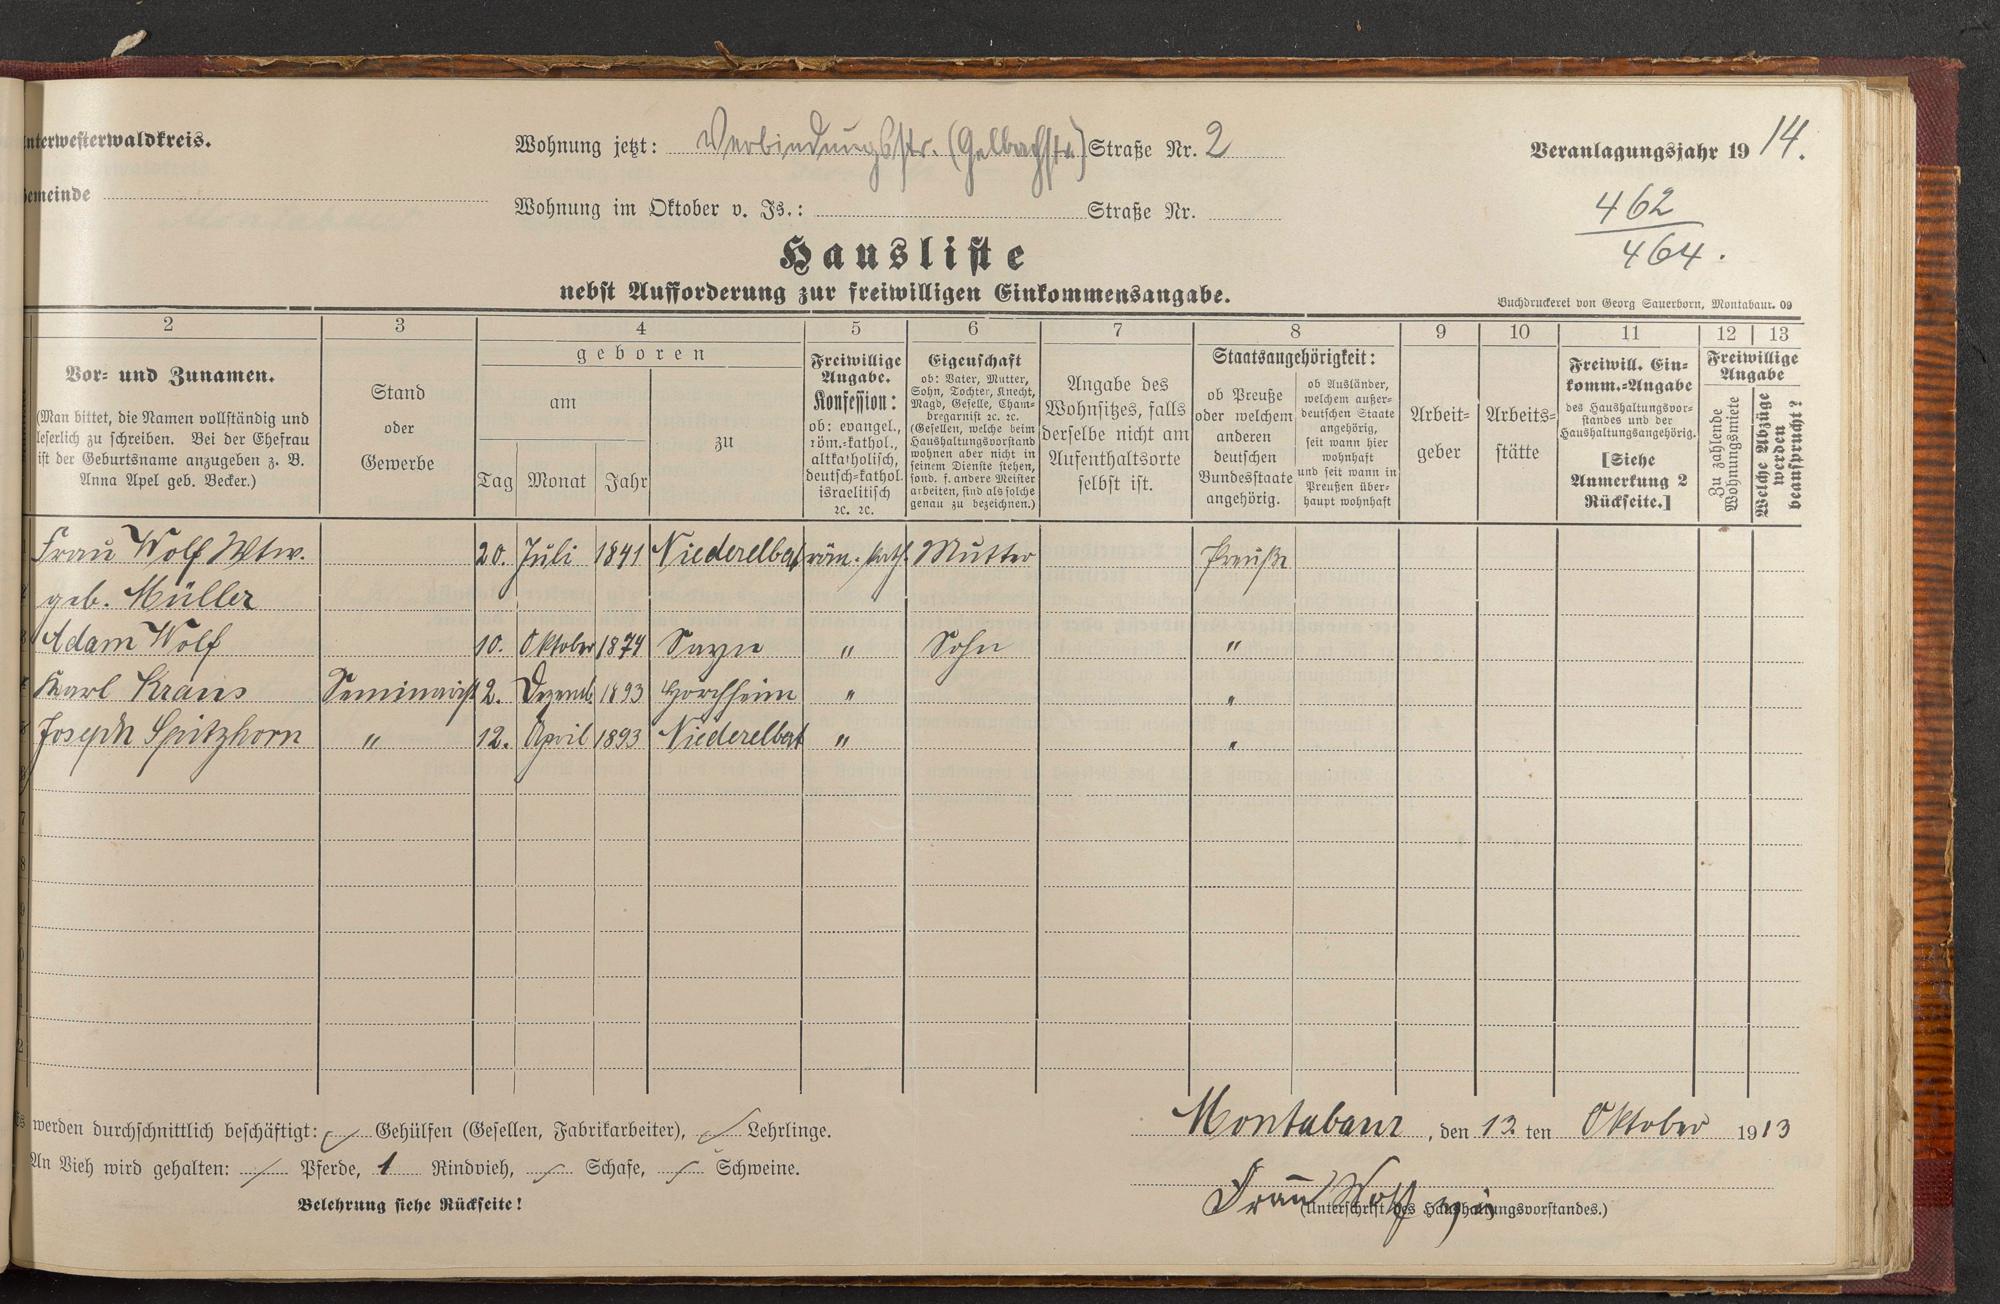 nterwesterwaldkreis.
Wohnung jetzt: Verbindungsstr. (Gelbachstr.) Straße Nr. 2
Veranlagungsjahr 1914.
emeinde
Wohnung im Oktober v. Js.: Straße Nr.
462
464.
Hausliste
nebst Aufforderung zur freiwilligen Einkommensangabe.
Buchdruckerei von Georg Sauerborn, Montabaur. 09
2 3 4 5 6 7 8 9 10 11 12 13
Vor- und Zunamen.
(Man bittet, die Namen vollständig und
leserlich zu schreiben. Bei der Ehefrau
ist der Geburtsname anzugeben z. B.
Anna Apel geb. Becker.)
Stand
oder
Gewerbe
geboren
am
Tag Monat Jahr
zu
Freiwillige
Angabe.
Konfession:
ob: evangel.,
röm.-kathol.,
altkatholisch,
deutsch-kathol.
israelitisch
ec. ec.
Eigenschaft
ob: Vater, Mutter,
Sohn, Tochter, Knecht,
Magd, Geselle, Cham-
bregarnist ec. ec.
(Gesellen, welche beim
Haushaltungsvorstand
wohnen aber nicht in
seinem Dienste stehen,
sond. f. andere Meister
arbeiten, sind als solche
genau zu bezeichnen.)
Angabe des
Wohnsitzes, falls
derselbe nicht am
Aufenthaltsorte
selbst ist.
Staatsangehörigkeit:
ob Preuße
oder welchem
anderen
deutschen
Bundesstaate
angehörig.
ob Ausländer,
welchem außer-
deutschen Staate
angehörig,
seit wann hier
wohnhaft
und seit wann in
Preußen über-
haupt wohnhaft
Arbeit-
geber
Arbeits-
stätte
Freiwill. Ein-
komm.-Angabe
des Haushaltungsvor-
standes und der
Haushaltungsangehörig.
[Siehe
Anmerkung 2
Rückseite.]
Freiwillige
Angabe
Zu zahlende
Wohnungsmiete
Welche Abzüge
werden
beansprucht?
Frau Wolf Wtw. 20. Juli 1841 Niederelbert röm. kath. Mutter Preuße
geb. Müller
3 Adam Wolf 10. Oktober 1874 Sayn " Sohn "
4 Karl Kraus Seminarist 2. Dezemb. 1893 Horchheim " "
5 Joseph Spitzhorn " 12. April 1893 Niederelbert " "
6
7
8
9
0
1
2
werden durchschnittlich beschäftigt: / Gehülfen (Gesellen, Fabrikarbeiter), / Lehrlinge.
An Vieh wird gehalten: / Pferde, 1 Rindvieh, / Schafe, / Schweine.
Belehrung siehe Rückseite!
Montabaur, den 12 ten Oktober 1913
Frau Wolf
(Unterschrift des Haushaltungsvorstandes.)